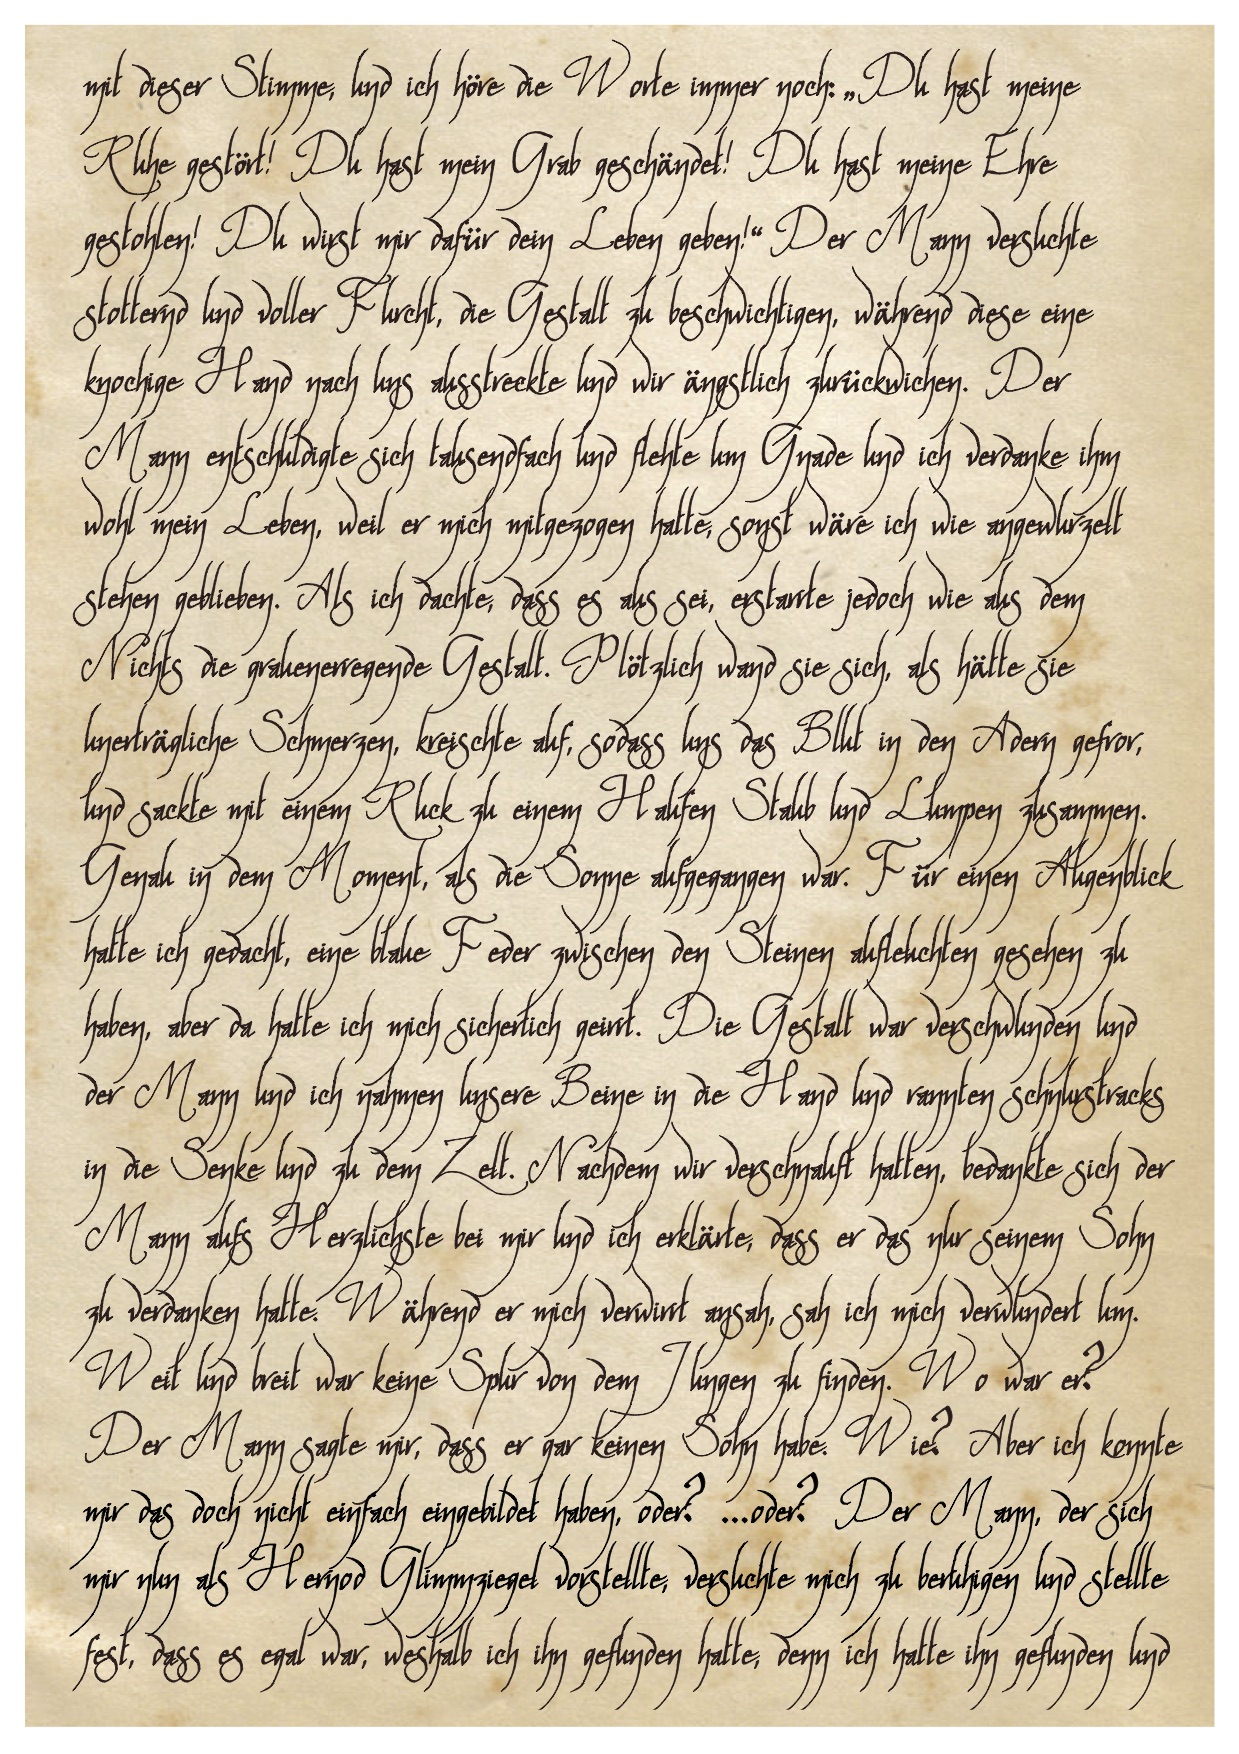 mit dieser Stimme, und ich höre die Worte immer noch: „Du hast meine
Ruhe gestört! Du hast mein Grab geschändet! Du hast meine Ehre
gestohlen! Du wirst mir dafür dein Leben geben!“ Der Mann versuchte
stotternd und voller Furcht, die Gestalt zu beschwichtigen, während diese eine
knochige Hand nach uns ausstreckte und wir ängstlich zurückwichen. Der
Mann entschuldigte sich tausendfach und flehte um Gnade und ich verdanke ihm
wohl mein Leben, weil er mich mitgezogen hatte, sonst wäre ich wie angewurzelt
stehen geblieben. Als ich dachte, dass es aus sei, erstarrte jedoch wie aus dem
Nichts die grauenerregende Gestalt. Plötzlich wand sie sich, als hätte sie
unerträgliche Schmerzen, kreischte auf, sodass uns das Blut in den Adern gefror,
und sackte mit einem Ruck zu einem Haufen Staub und Lumpen zusammen.
Genau in dem Moment, als die Sonne aufgegangen war. Für einen Augenblick
hatte ich gedacht, eine blaue Feder zwischen den Steinen aufleuchten gesehen zu
haben, aber da hatte ich mich sicherlich geirrt. Die Gestalt war verschwunden und
der Mann und ich nahmen unsere Beine in die Hand und rannten schnurstracks
in die Senke und zu dem Zelt. Nachdem wir verschnauft hatten, bedankte sich der
Mann aufs Herzlichste bei mir und ich erklärte, dass er das nur seinem Sohn
zu verdanken hatte. Während er mich verwirrt ansah, sah ich mich verwundert um.
Weit und breit war keine Spur von dem Jungen zu finden. Wo war er?
Der Mann sagte mir, dass er gar keinen Sohn habe. Wie? Aber ich konnte
mir das doch nicht einfach eingebildet haben, oder? ...oder? Der Mann, der sich
mir nun als Hernod Glimmziegel vorstellte, versuchte mich zu beruhigen und stellte
fest, dass es egal war, weshalb ich ihn gefunden hatte, denn ich hatte ihn gefunden und